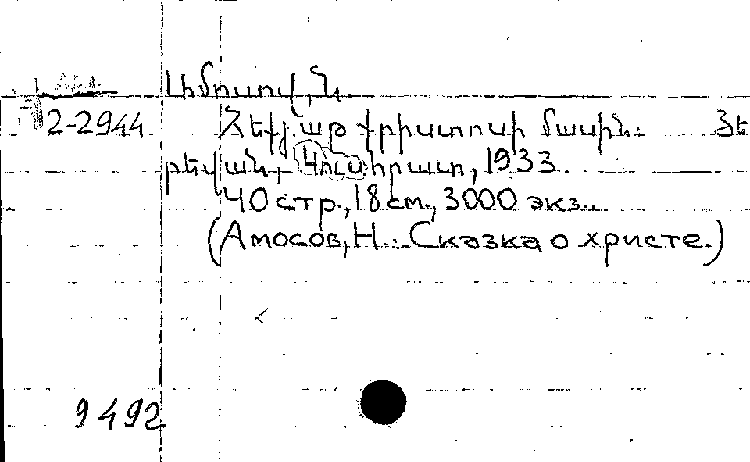 Ամոսով, Ն.
2-2944 Հեքյաթ Քրիստոսի մասին. Յե
րեվան, Կուսհրատ, 1933
40 стр., 18 см., 3000 экз.
(Амосов, Н. Сказка о христе.)
9492